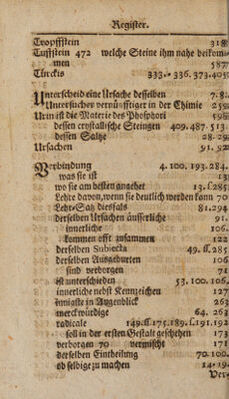 Register.
Tropffstein 318
Tuffstein 472 welche Steine ihm nahe beikom-
men 587
Türckis 333. 336. 373. 405
Unterscheid eine Ursache desselben 7. 8.
Untersucher vernünfftiger in der Chimie 259
Urin ist die Materie des Phosphori 598
dessen crystallische Steingen 409. 487. 513
dessen Saltz 28. 29
Ursachen 91. 92
Verbindung 4. 100. 193. 284.
was sie ist 13
wo sie am besten angehet 13. ſ. 285
Lehre davon, wenn sie deutlich werden kann 70
Lehr-Satz diesfals 81. 294
derselben Ursachen äusserliche 91
innerliche 106
kommen offt zusammen 122
derselben Subiecta 49. ſſ. 285
derselben Ausgeburten 106
sind verborgen 71
ist unterschieden 53. 100. 106
innerliche nebst Kennzeichen 127
innigste in Augenblick 263
merckwürdige 64. 263
radicale 149. ſſ. 175. 189. ſ. 191. 192
soll in der ersten Gestalt geschehen 173
verborgen 70 vermischt 171
derselben Eintheilung 70. 100.
ob selbige zu machen 14. 19
Ver-